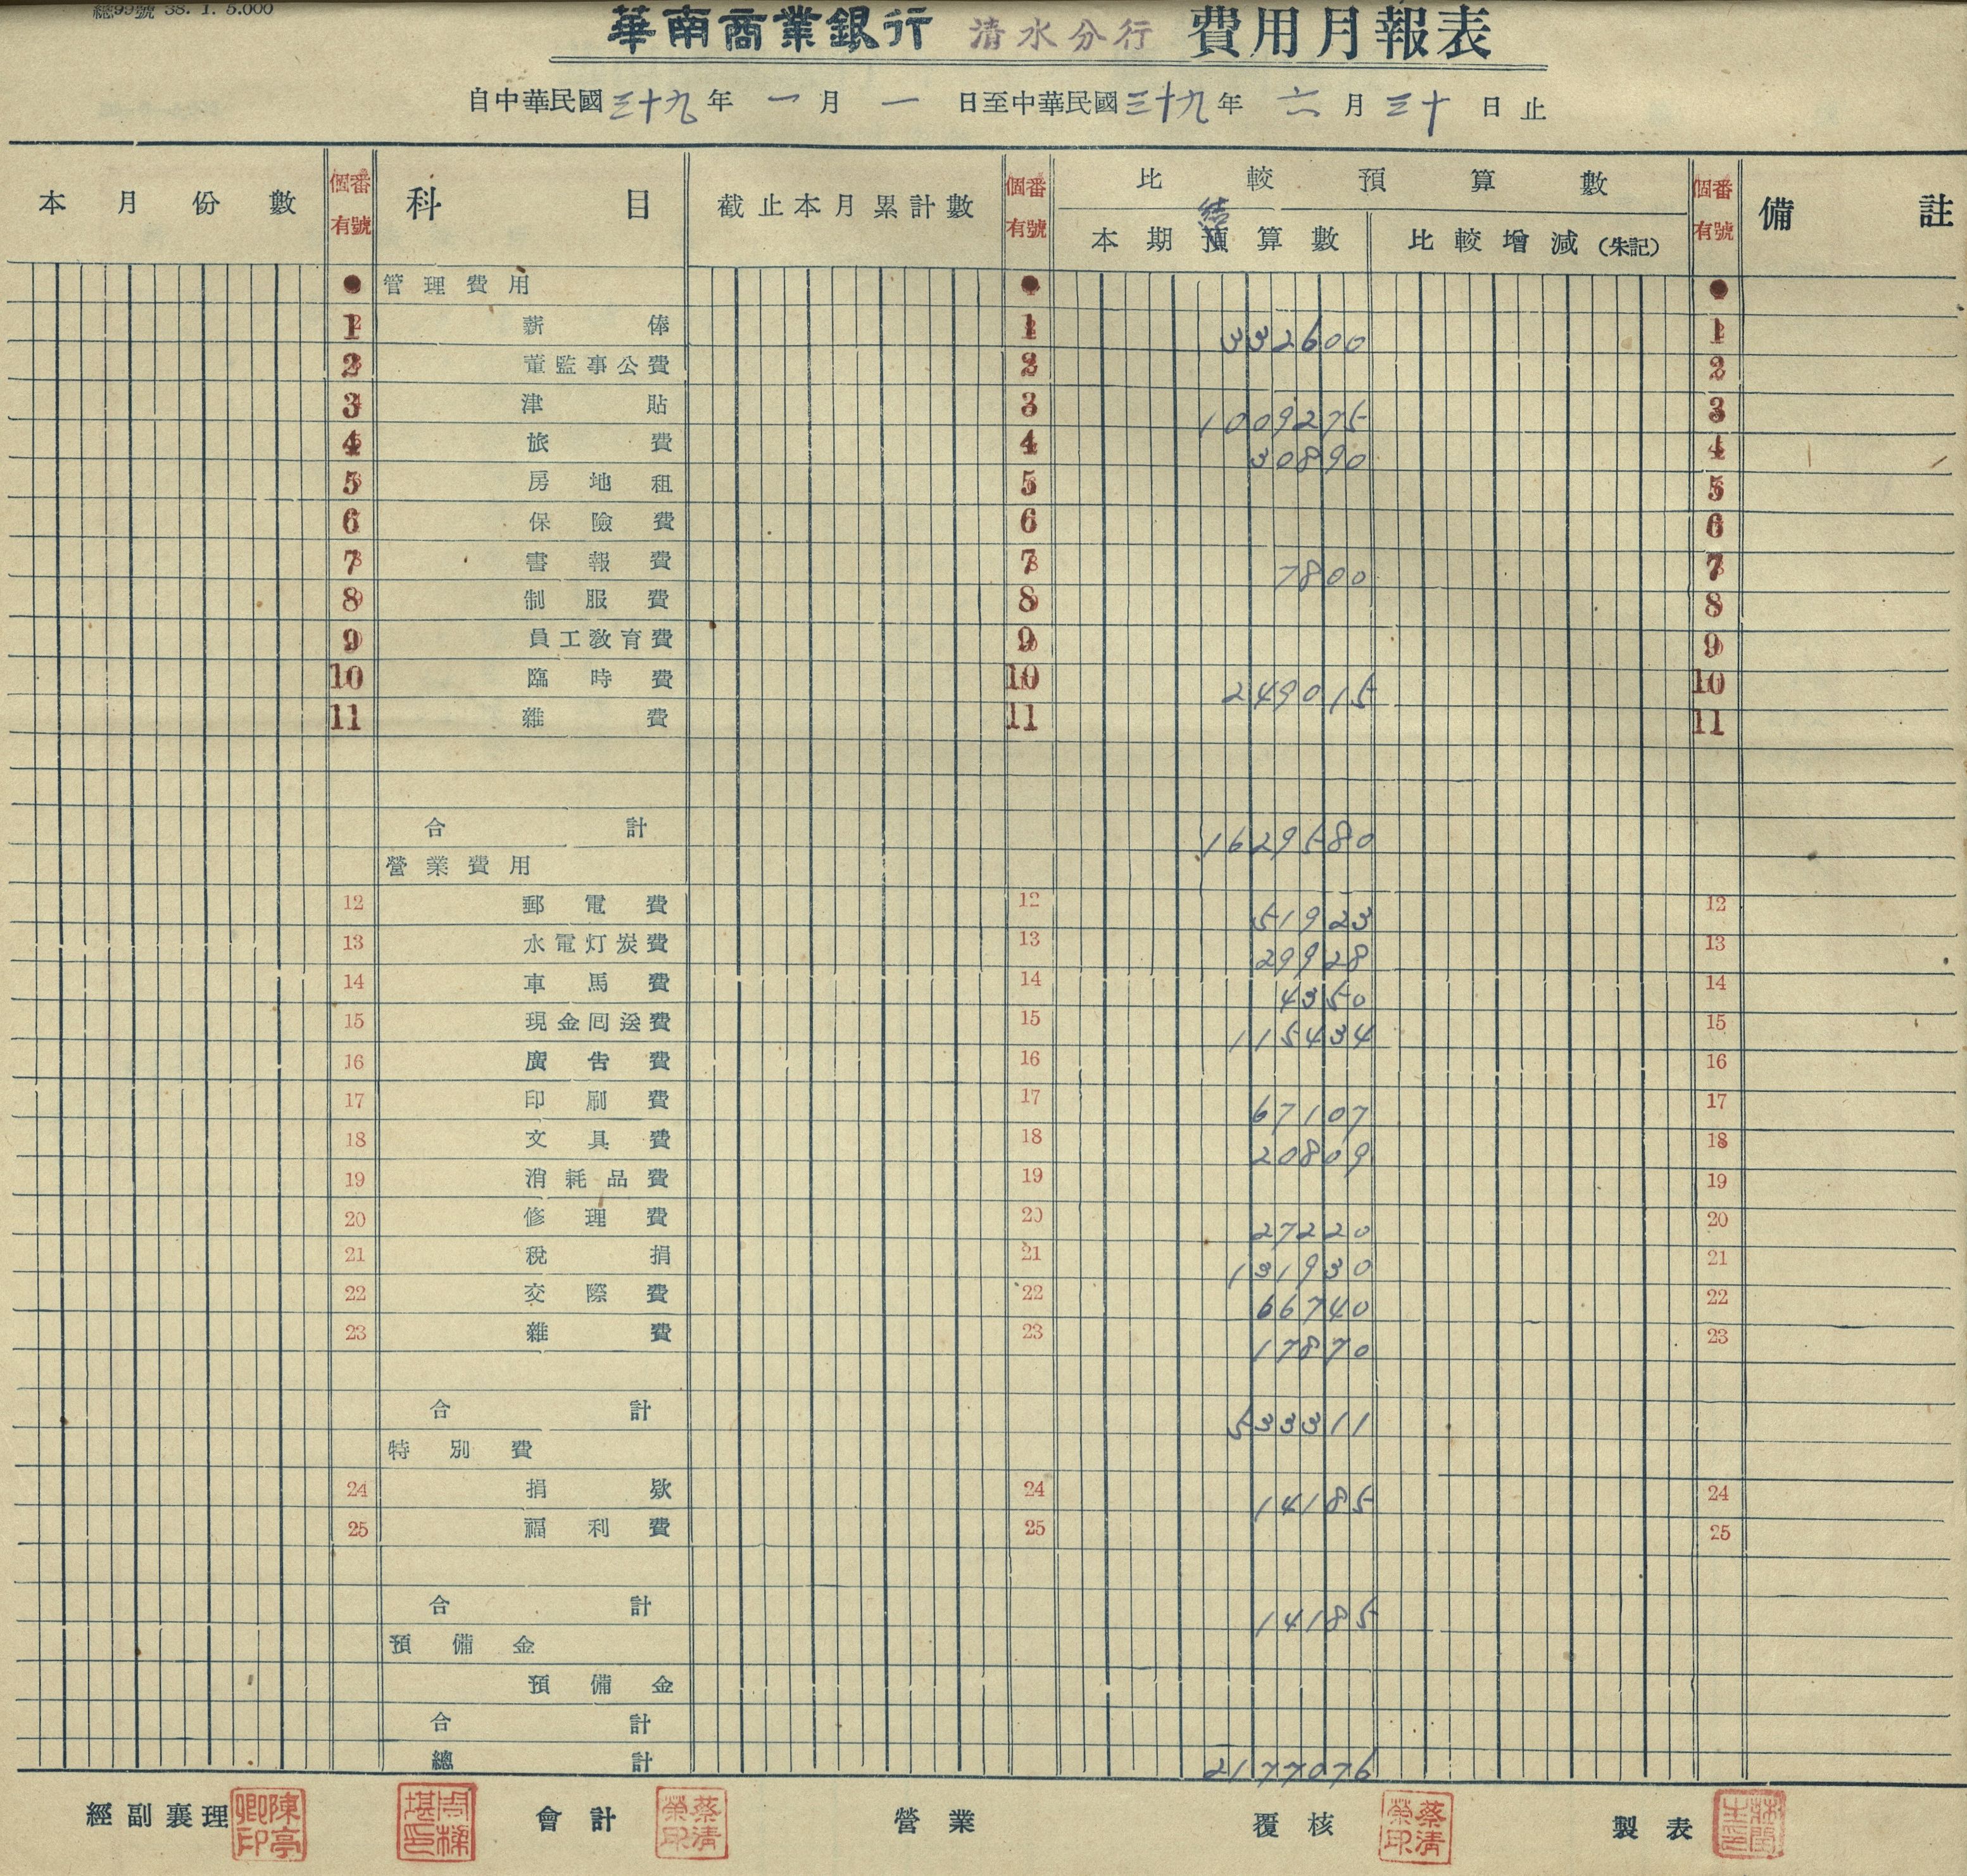 總99號 38. 1. 5.000
華南商業銀行 清水分行 費用月報表
自中華民國三十九年 一月 一 日至中華民國三十九年 六月三十日止
本月份數 個有番號 科目 截止本月累計數 個有番號 比較預算數 個有番號 備註
本期結算數 比較增減(朱記)
管理費用
1 薪俸 1 332600 1
2 董監事公費 2 2
3 津貼 3 1009275 3
4 旅費 4 30890 4
5 房地租 5 5
6 保險費 6 6
7 書報費 7 7800 7
8 制服費 8 8
9 員工教育費 9 9
10 臨時費 10 249015 10
11 雜費 11 11
合計 1629580
營業費用
12 郵電費 12 51923 12
13 水電灯炭費 13 29928 13
14 車馬費 14 4350 14
15 現金囘送費 15 115434 15
16 廣告費 16 16
17 印刷費 17 67107 17
18 文具費 18 20809 18
19 消耗品費 19 19
20 修理費 20 27220 20
21 稅捐 21 131930 21
22 交際費 22 66740 22
23 雜費 23 17870 23
合計 533311
特別費
24 捐欵 24 14185 24
25 福利費 25 25
合計 14185
預備金
預備金
合計
總計 2177076
經副襄理 陳亭卿印 會計 蔡清榮印 營業 覆核 蔡清榮印 製表